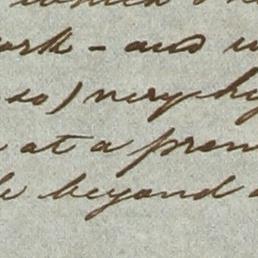 ork - and w
so) very hig
at a prem
le beyond